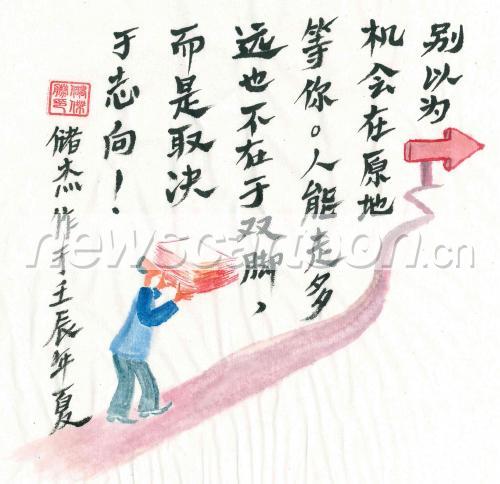 别以为
机会在原地
等你。人能走多
远也不在于双脚，
而是取决
于志向！
储杰作于壬辰年夏
newscartoon.cn